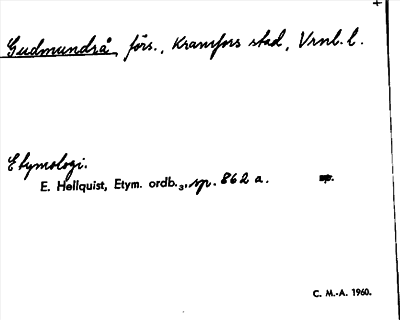 Gudmundrå, förs., Kramfors stad, Vrnl. l.
Etymologi.
E. Hellquist, Etym. ordb.₃, sp. 862 a.
C. M.-A. 1960.